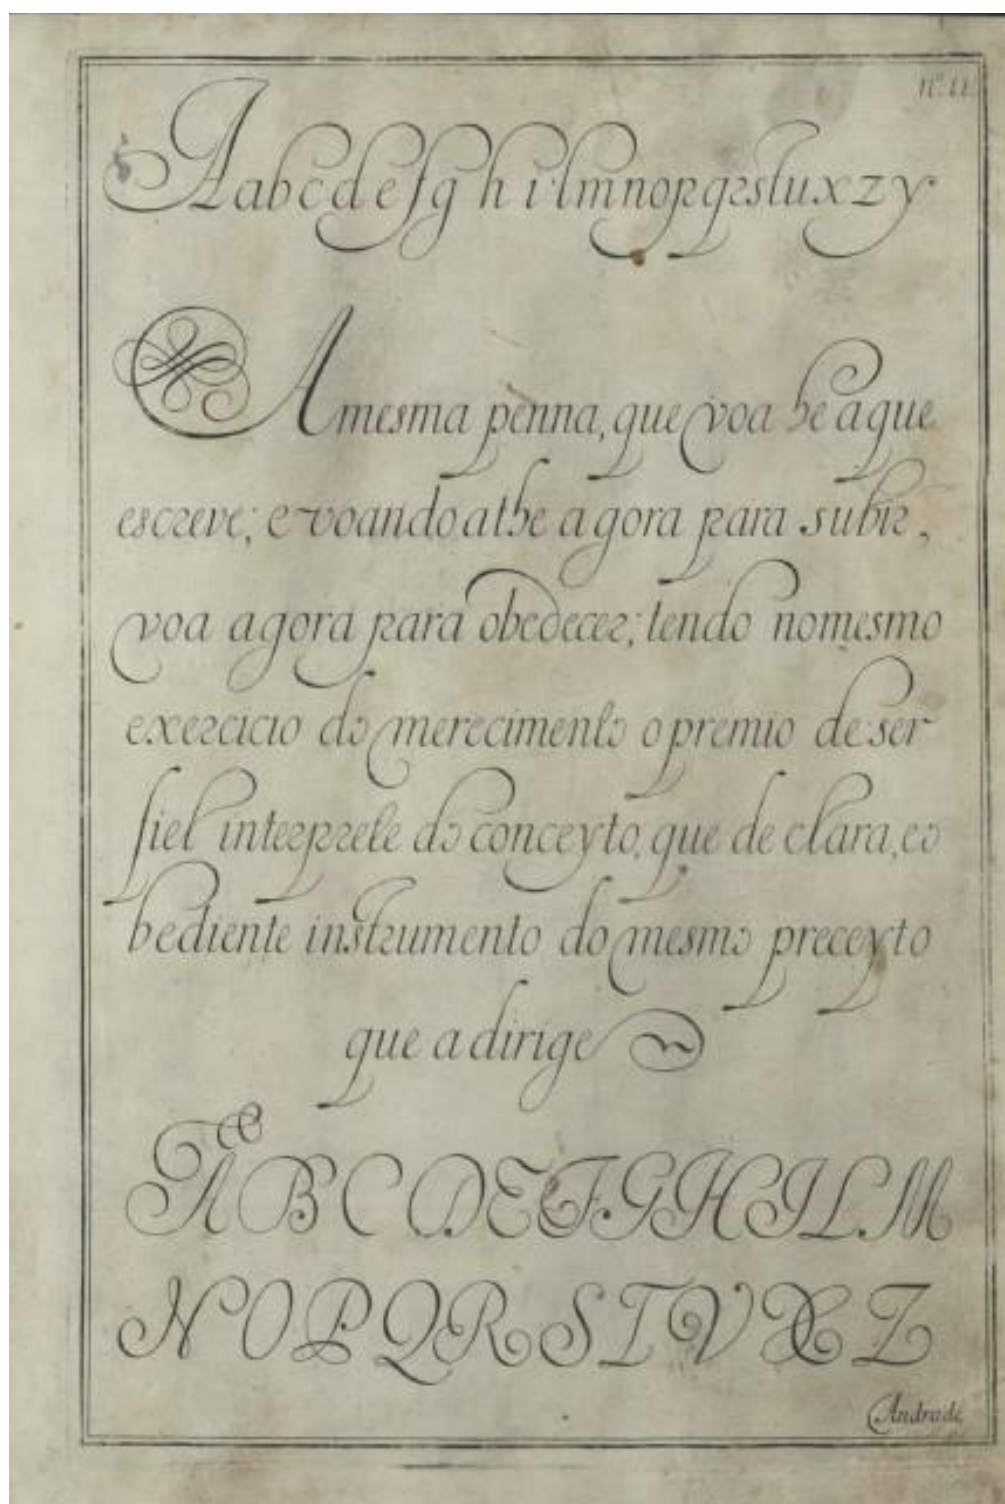 Nº. 11.
A a b c d e f g h i l m n o p q r s t u x z y
A mesma penna, que voa he a que
escreve; e voando athe agora para subir,
voa agora para obedecer; tendo no mesmo
exercicio do merecimento o premio de ser
fiel interprete do conceyto, que de clara, e o
bediente instrumento do mesmo preceyto
que a dirige
A B C D E F G H I L M
N O P Q R S T V X Z
Andrade